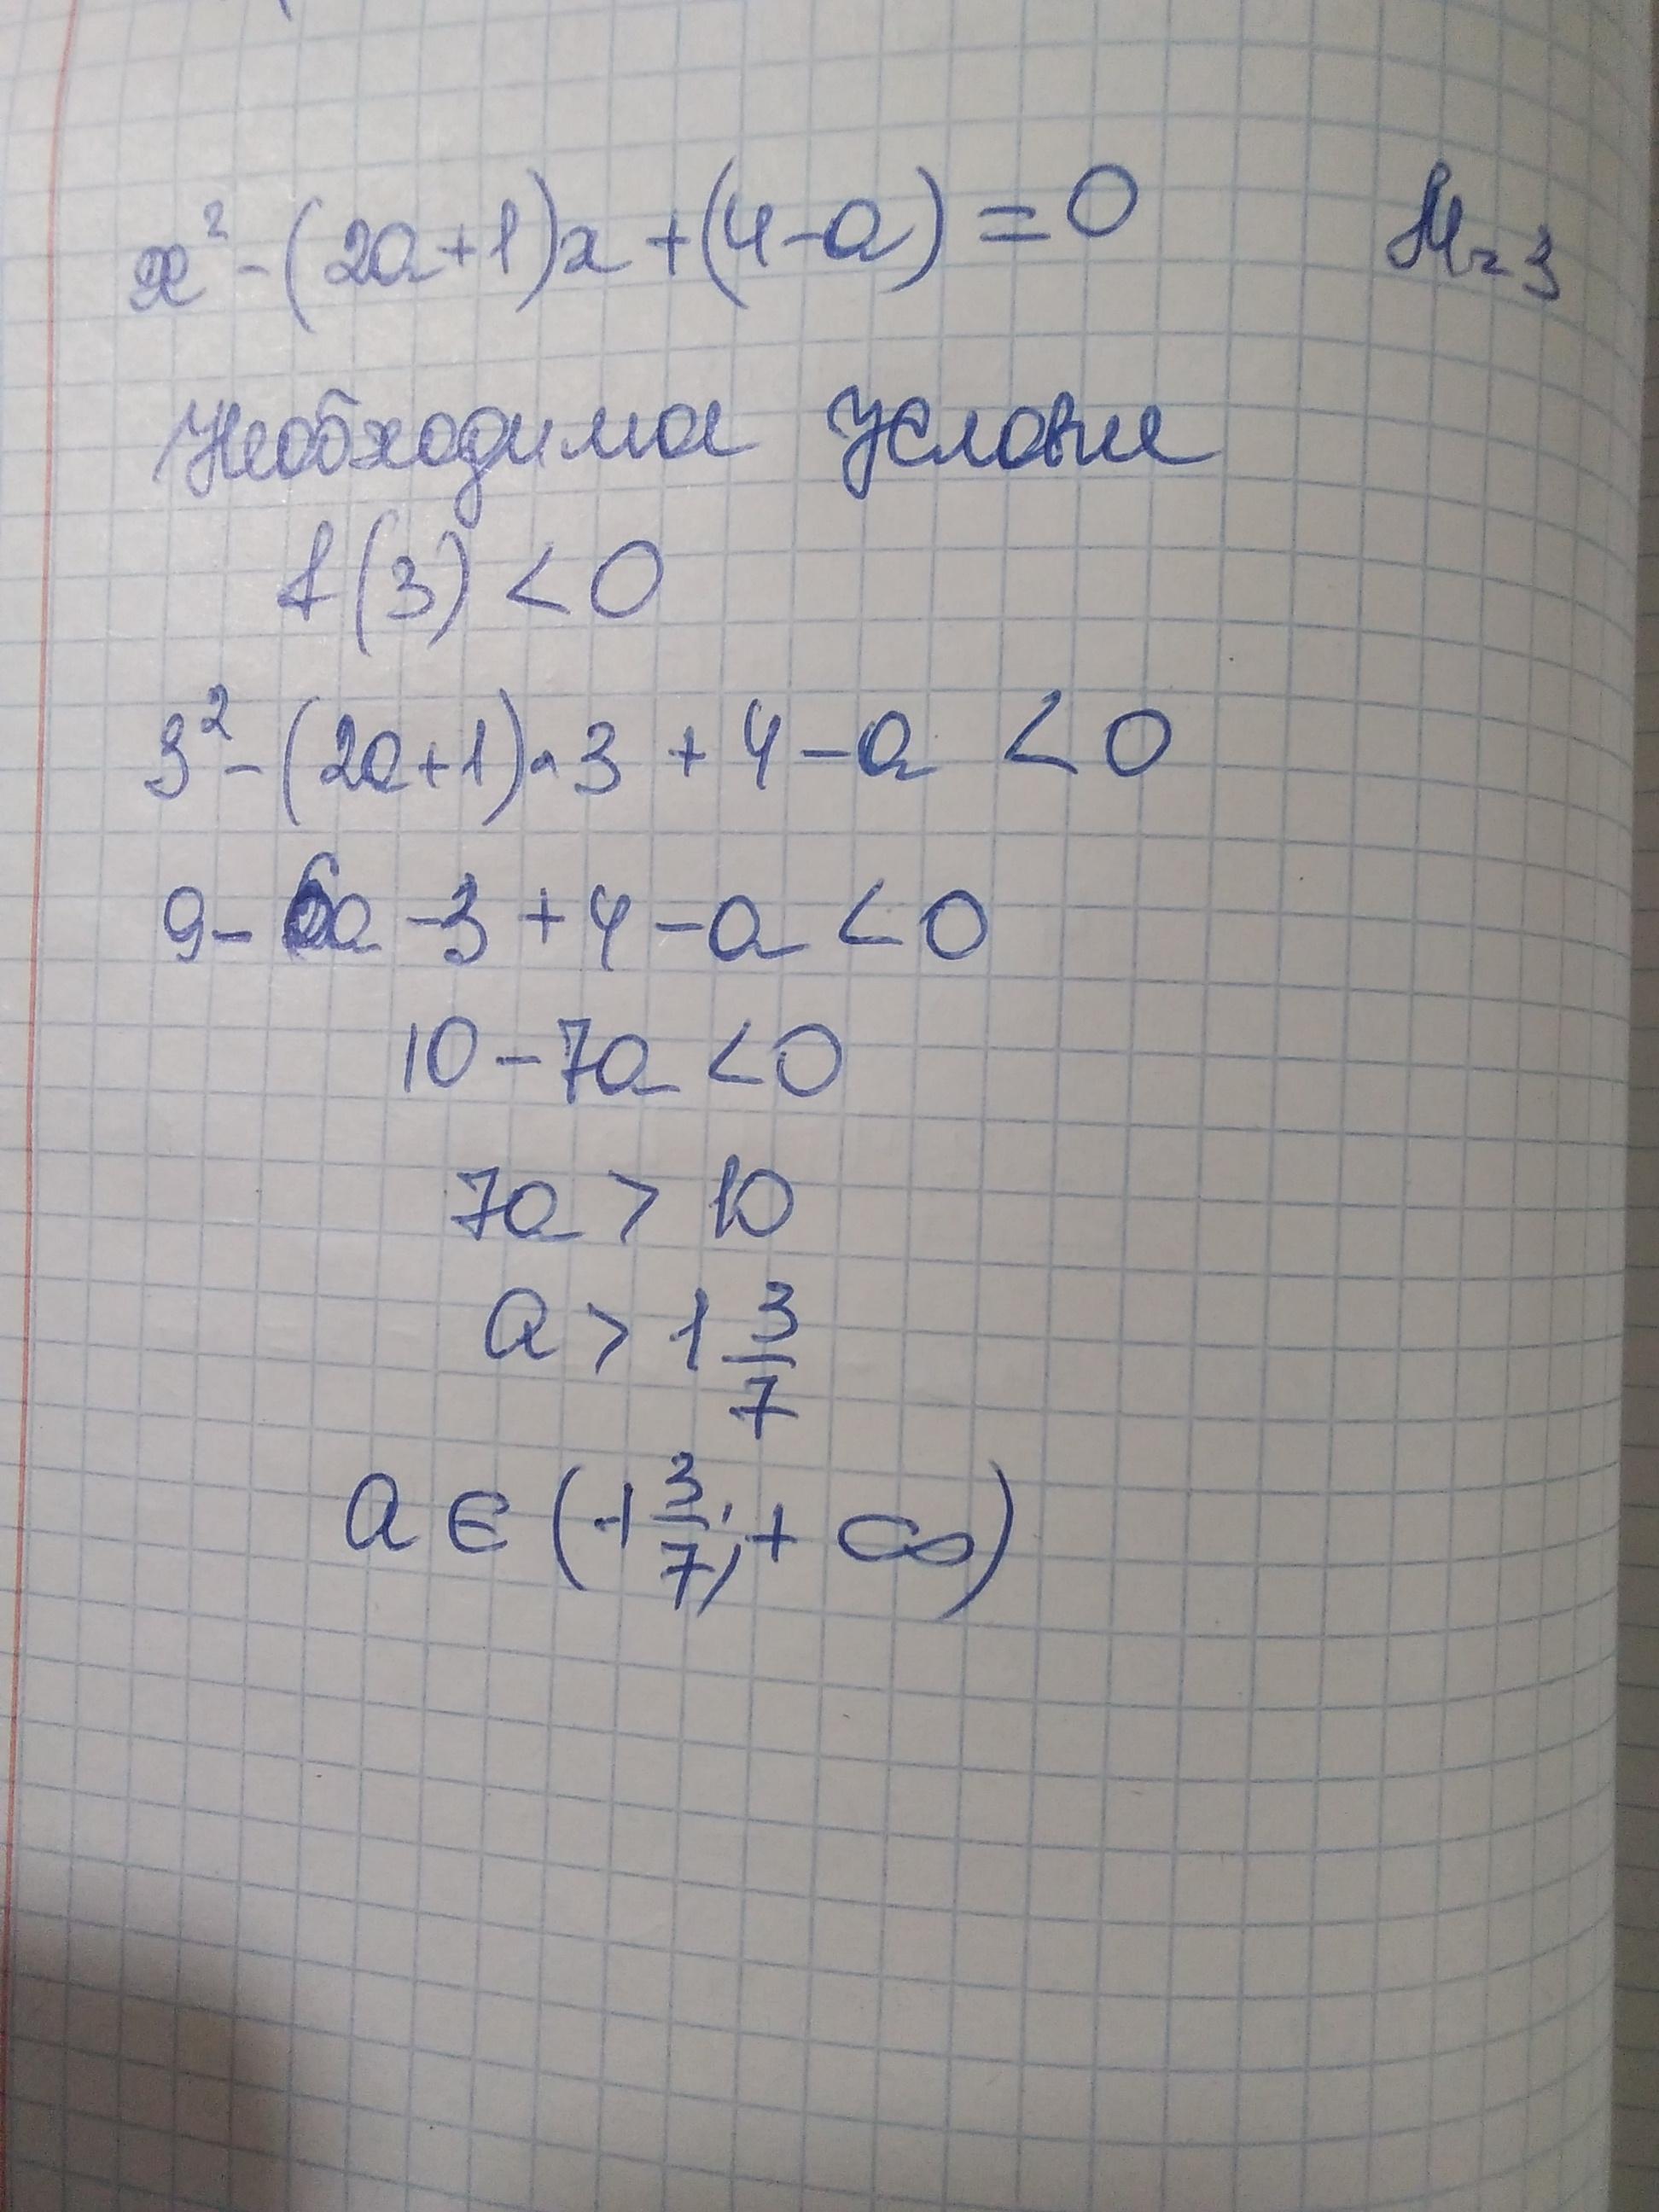 x² - (2a+1)x + (4-a) = 0 M=3
Необходима условие
f(3) < 0
3² - (2a+1)·3 + 4 - a < 0
9 - 6a - 3 + 4 - a < 0
10 - 7a < 0
7a > 10
a > 1 3/7
a ∈ (1 3/7; + ∞)